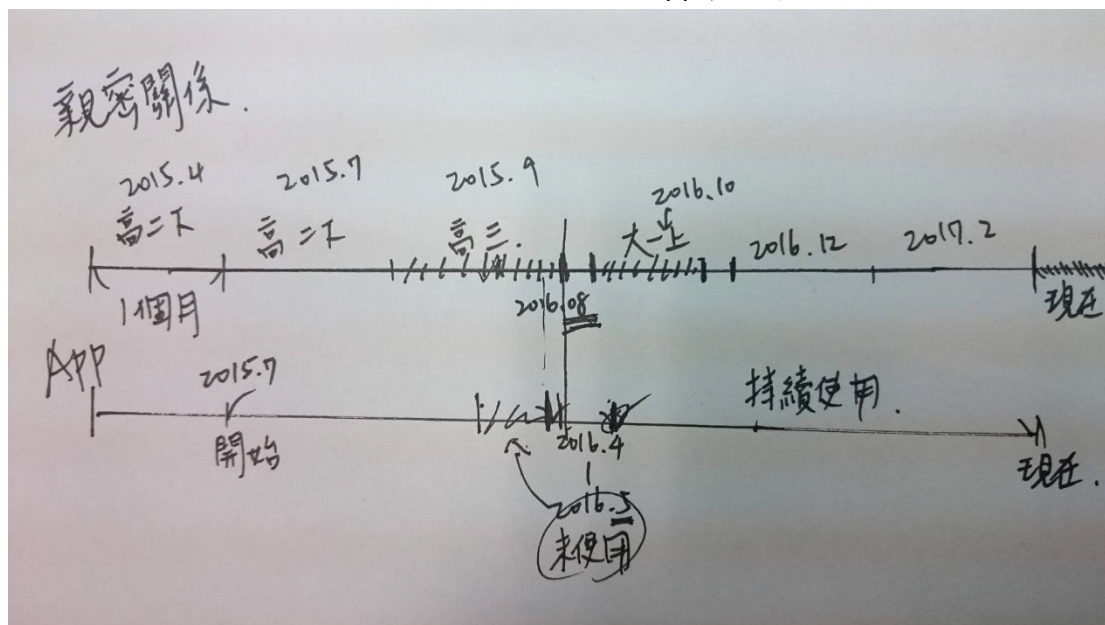 親密關係.
2015.4
2015.7
2015.9
2016.10
高二下
高二下
高三.
大一上
2016.12
2017.2
1個月
2016.08
現在
APP
2015.7
持續使用.
開始
2016.4
|
2016.5
未使用
現在.